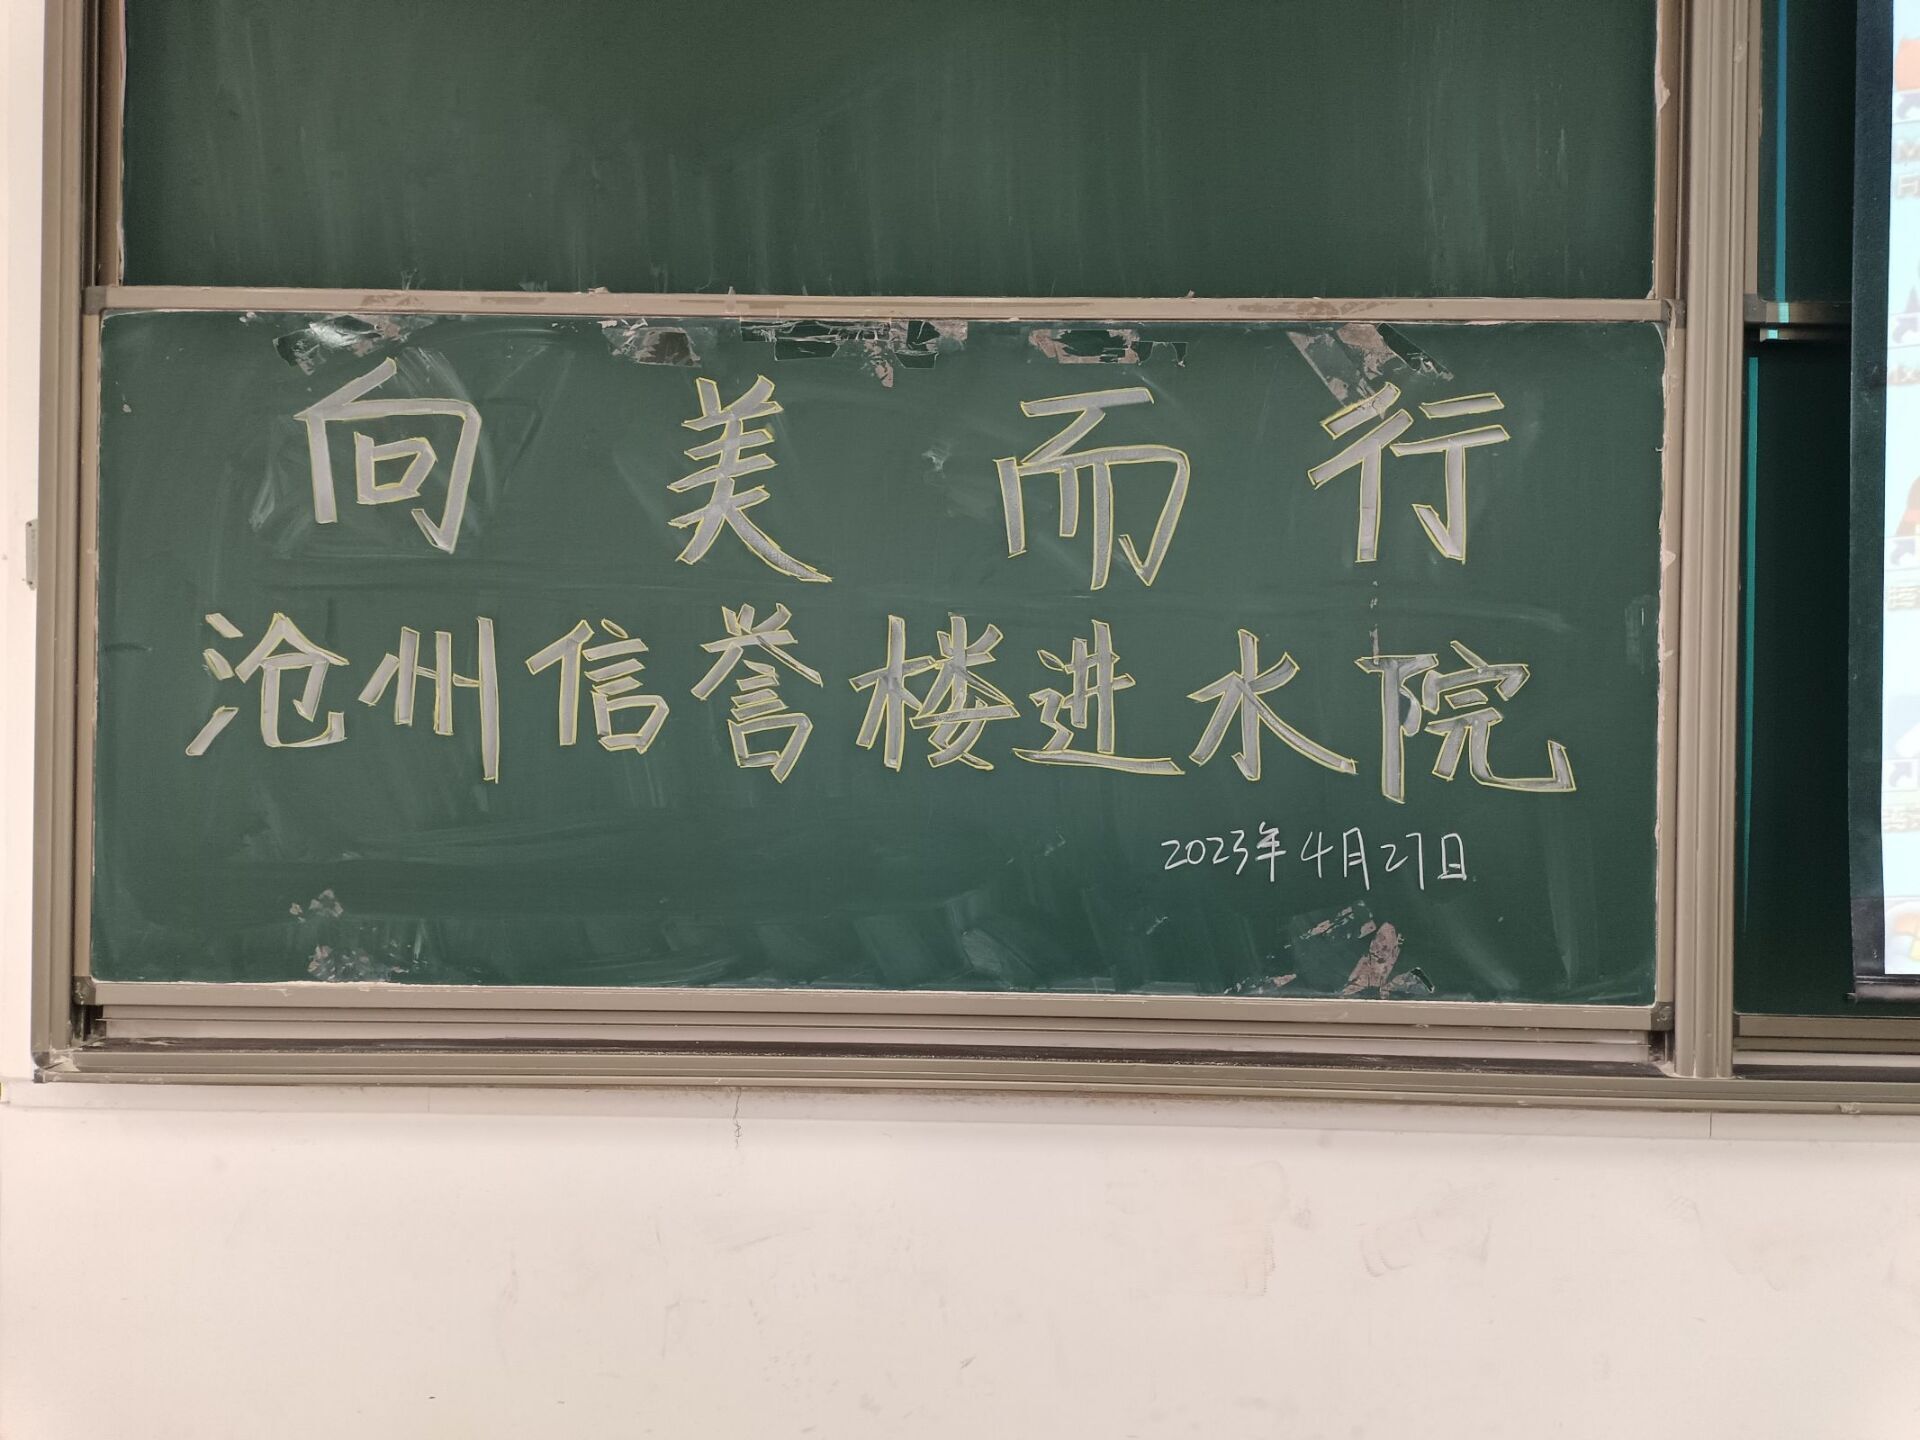 向美而行
沧州信誉楼进水院
2023年4月27日